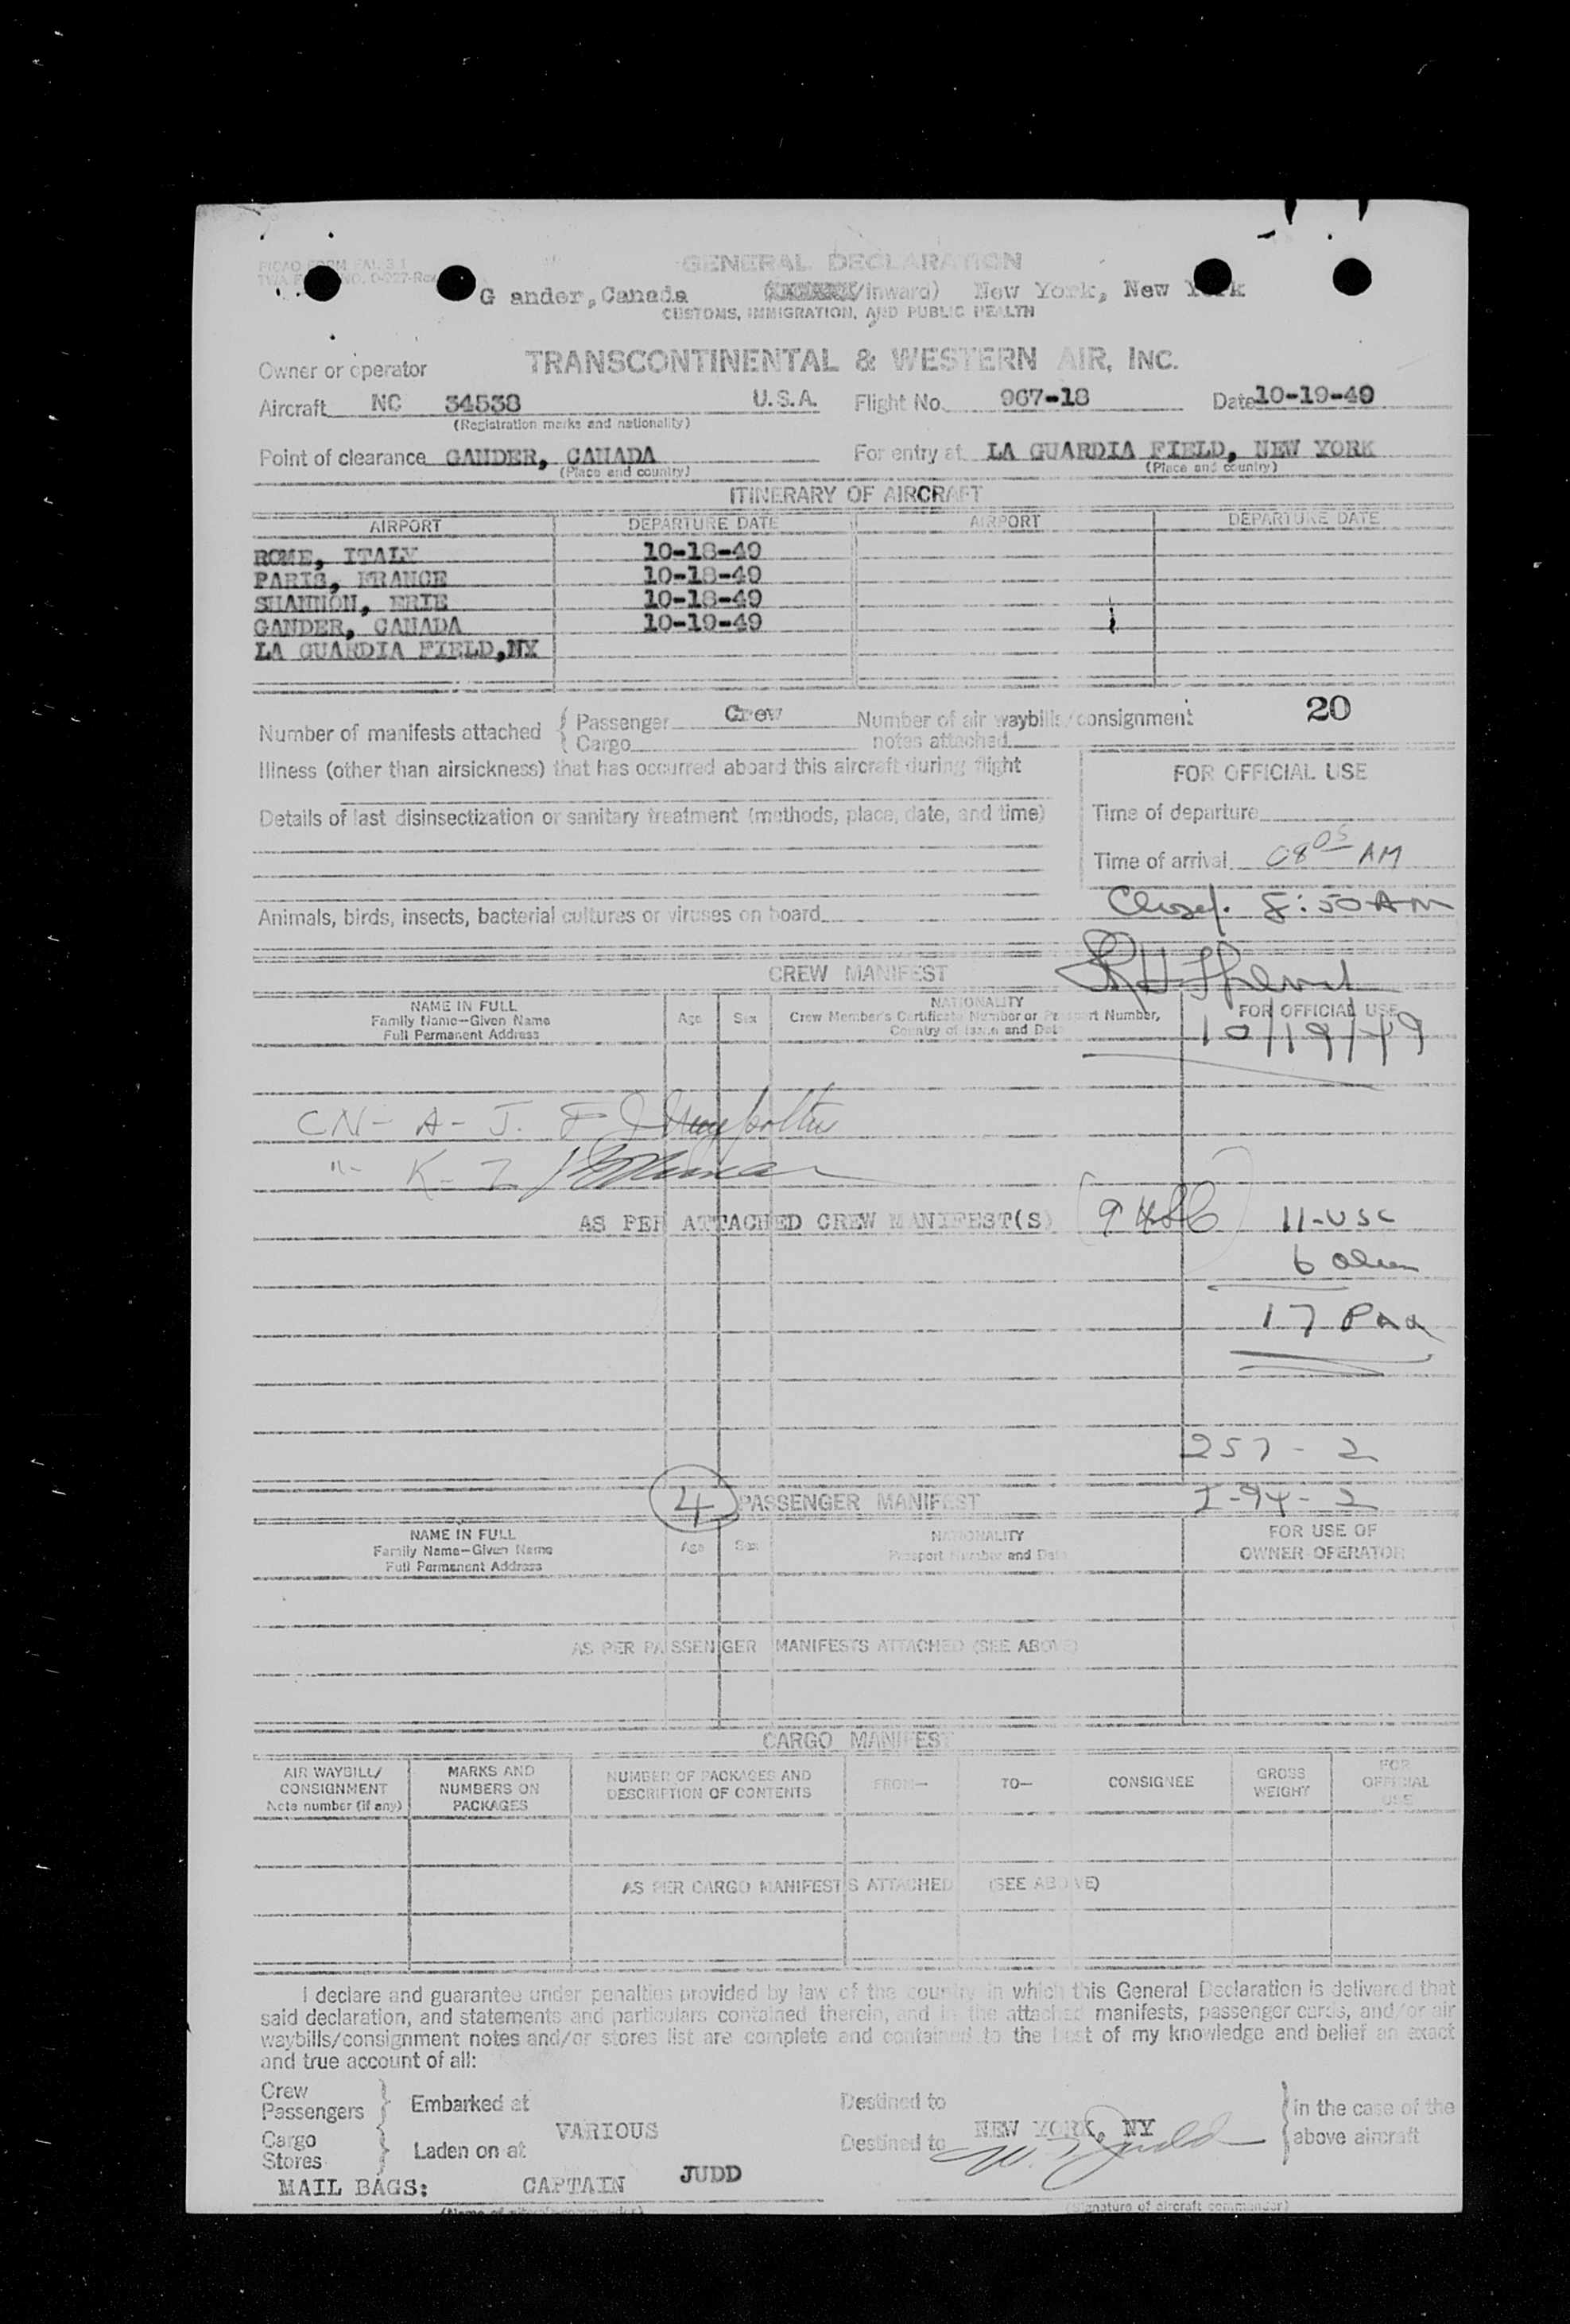 PICAO FORM FAL 3.1
GENERAL DECLARATION
G ander, Canada /Inward) New York, New York
CUSTOMS, IMMIGRATION, AND PUBLIC HEALTH
Owner or operator TRANSCONTINENTAL & WESTERN AIR, INC.
Aircraft NC 34538 U.S.A. Flight No. 967-18 Date 10-19-49
(Registration marks and nationality)
Point of clearance GANDER, CANADA For entry at LA GUARDIA FIELD, NEW YORK
(Place and country) (Place and country)
ITINERARY OF AIRCRAFT
AIRPORT DEPARTURE DATE AIRPORT DEPARTURE DATE
ROME, ITALY 10-18-49
PARIS, FRANCE 10-18-49
SHANNON, ERIE 10-18-49
GANDER, CANADA 10-19-49
LA GUARDIA FIELD,NY
Number of manifests attached { Passenger Crew Number of air waybills/consignment 20
Cargo notes attached
Illness (other than airsickness) that has occurred aboard this aircraft during flight
FOR OFFICIAL USE
Details of last disinsectization or sanitary treatment (methods, place, date, and time)
Time of departure
Time of arrival 08 05 AM
Closed. 8:50 AM
Animals, birds, insects, bacterial cultures or viruses on board
CREW MANIFEST
NAME IN FULL Age Sex NATIONALITY FOR OFFICIAL USE
Family Name—Given Name Crew Member's Certificate Number or Passport Number,
Full Permanent Address Country of Issue and Date
10/19/49
CN- A- J. F
"- K- Z
AS PER ATTACHED CREW MANIFEST(S) (9 USC) 11-USC
6 alien
17 Pax
257 - 2
I-94 - 2
4 PASSENGER MANIFEST
NAME IN FULL Age Sex NATIONALITY FOR USE OF
Family Name—Given Name Passport Number and Date OWNER-OPERATOR
Full Permanent Address
AS PER PASSENGER MANIFESTS ATTACHED (SEE ABOVE)
CARGO MANIFEST
AIR WAYBILL/ CONSIGNMENT Note number (if any) MARKS AND NUMBERS ON PACKAGES NUMBER OF PACKAGES AND DESCRIPTION OF CONTENTS FROM— TO— CONSIGNEE GROSS WEIGHT FOR OFFICIAL USE
AS PER CARGO MANIFESTS ATTACHED (SEE ABOVE)
I declare and guarantee under penalties provided by law of the country in which this General Declaration is delivered that
said declaration, and statements and particulars contained therein, and in the attached manifests, passenger cards, and/or air
waybills/consignment notes and/or stores list are complete and contained to the best of my knowledge and belief an exact
and true account of all:
Crew
Passengers } Embarked at Destined to } in the case of the
VARIOUS NEW YORK, NY
Cargo
Stores } Laden on at Destined to above aircraft
W. Judd
MAIL BAGS: CAPTAIN JUDD
(Signature of aircraft commander)